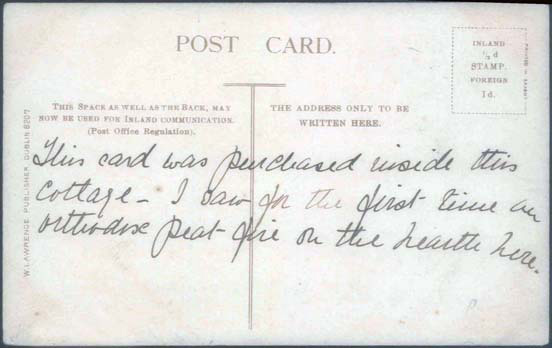 POST CARD.
INLAND
½d
STAMP.
FOREIGN
1d.
THIS SPACE AS WELL AS THE BACK, MAY
NOW BE USED FOR INLAND COMMUNICATION.
(Post Office Regulation).
THE ADDRESS ONLY TO BE
WRITTEN HERE.
W. LAWRENCE, PUBLISHER, DUBLIN 8207
This card was purchased inside this
cottage – I saw for the first time an
orthodox peat-fire on the hearth here.